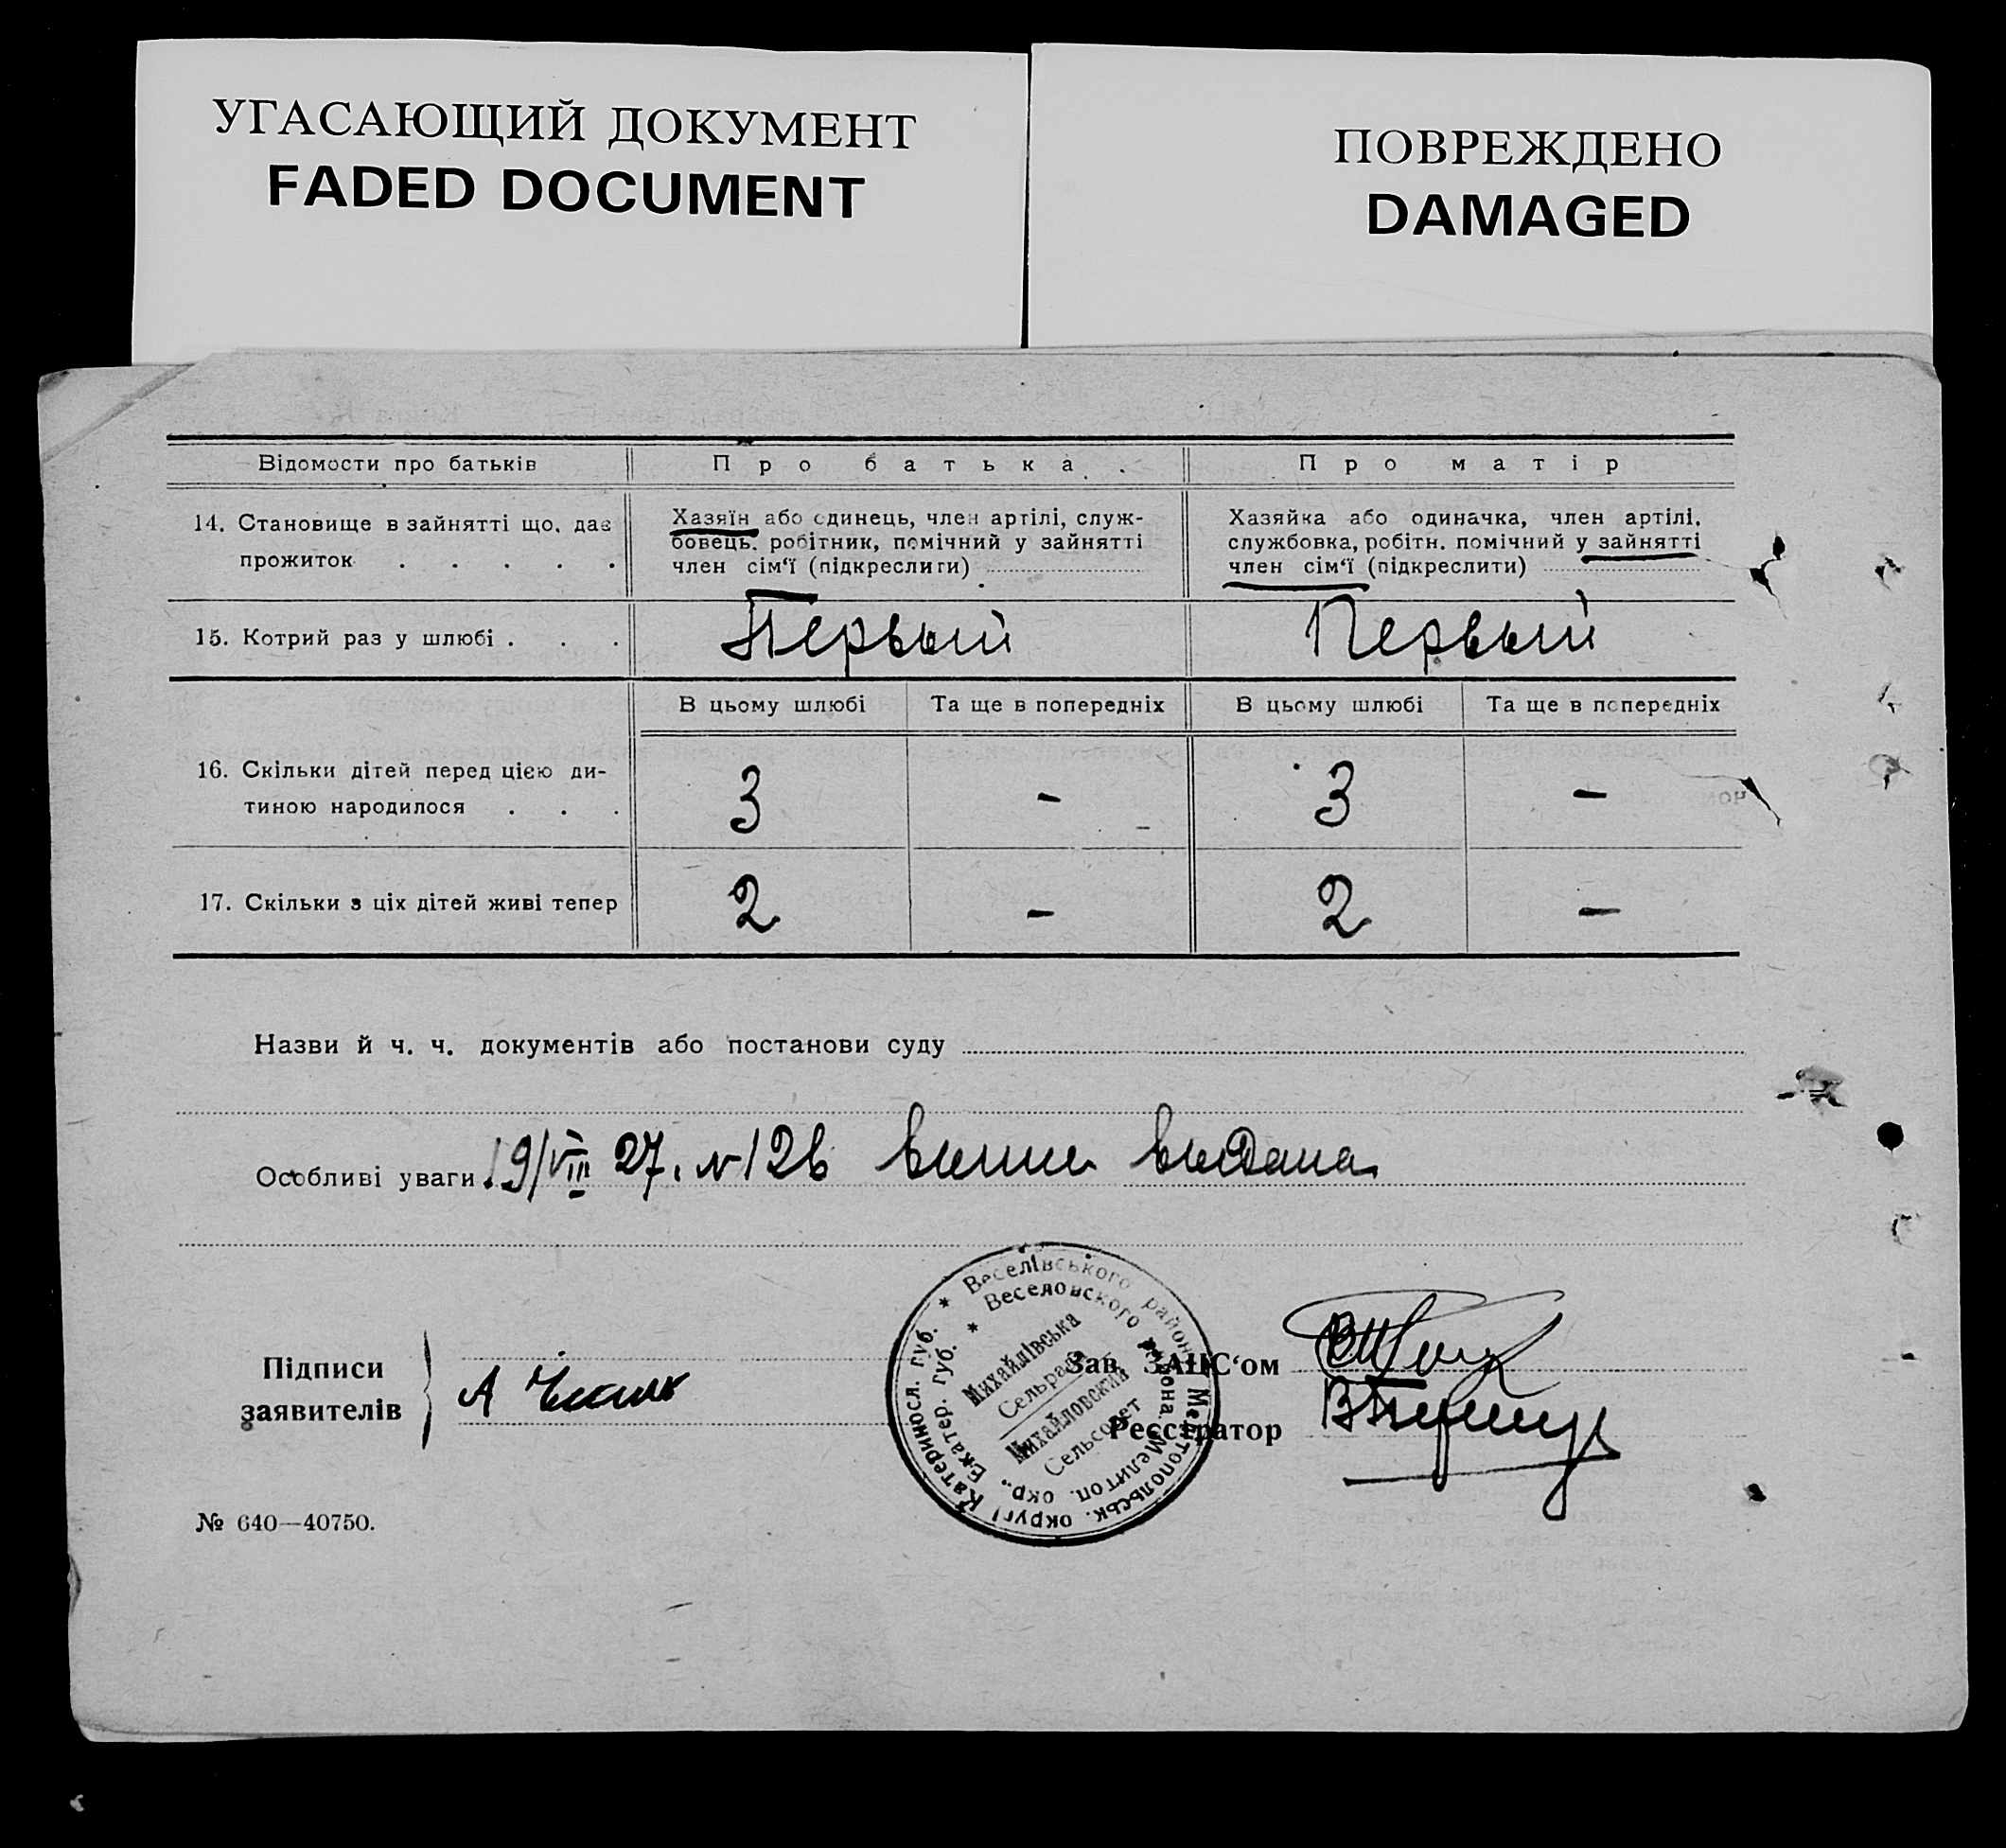 УГАСАЮЩИЙ ДОКУМЕНТ
FADED DOCUMENT
ПОВРЕЖДЕНО
DAMAGED
Відомости про батьків
Про батька.
Про матір
14. Становище в зайнятті що, дає
прожиток . . . . .
Хазяїн або єдинець, член артілі, служ-
бовець, робітник, помічний у зайнятті
член сім'ї (підкреслиги)
Хазяйка або одиначка, член артілі,
службовка, робітн. помічний у зайнятті
член сім'ї (підкреслити)
15. Котрий раз у шлюбі . . .
Первый
Первый
В цьому шлюбі
Та ще в попередніх
В цьому шлюбі
Та ще в попередніх
16. Скільки дітей перед цією ди-
тиною народилося . . .
3
-
3
-
17. Скільки з ціх дітей живі тепер
2
-
2
-
Назви й ч. ч. документів або постанови суду
Особливі уваги 19/VIII 27. № 126 выпись выдана
Підписи
заявителів
А
Веселівського району Мелітопольськ. округі Катериносл. губ.
Веселовского района Мелитоп. окр., Екатер. губ.
Михайлівська
Сельрада
Михайловский
Сельсовет
Зав. ЗАЦС'ом
Реєстратор
№ 640—40750.